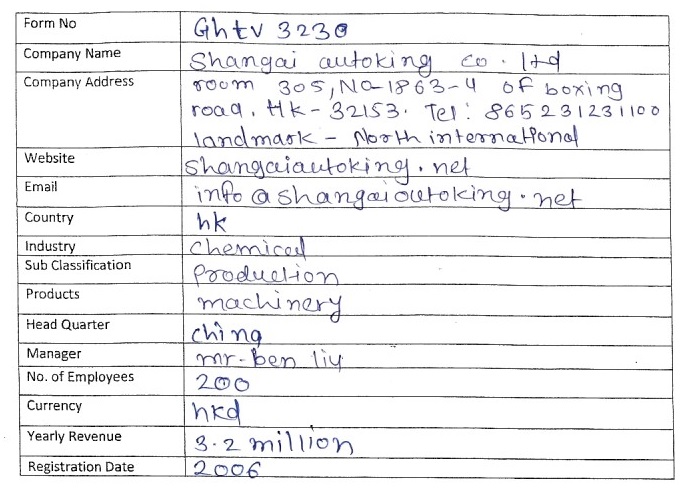 Form No Ghtv 3230
Company Name Shangai autoking co. ltd
Company Address room 305, NO-1863-4 of boxing
road. Hk-32153. Tel: 865231231100
landmark - North international
Website shangaiautoking.net
Email info@shangaiautoking.net
Country hk
Industry chemical
Sub Classification Production
Products machinery
Head Quarter china
Manager mr-ben liy
No. of Employees 200
Currency hkd
Yearly Revenue 3.2 million
Registration Date 2006